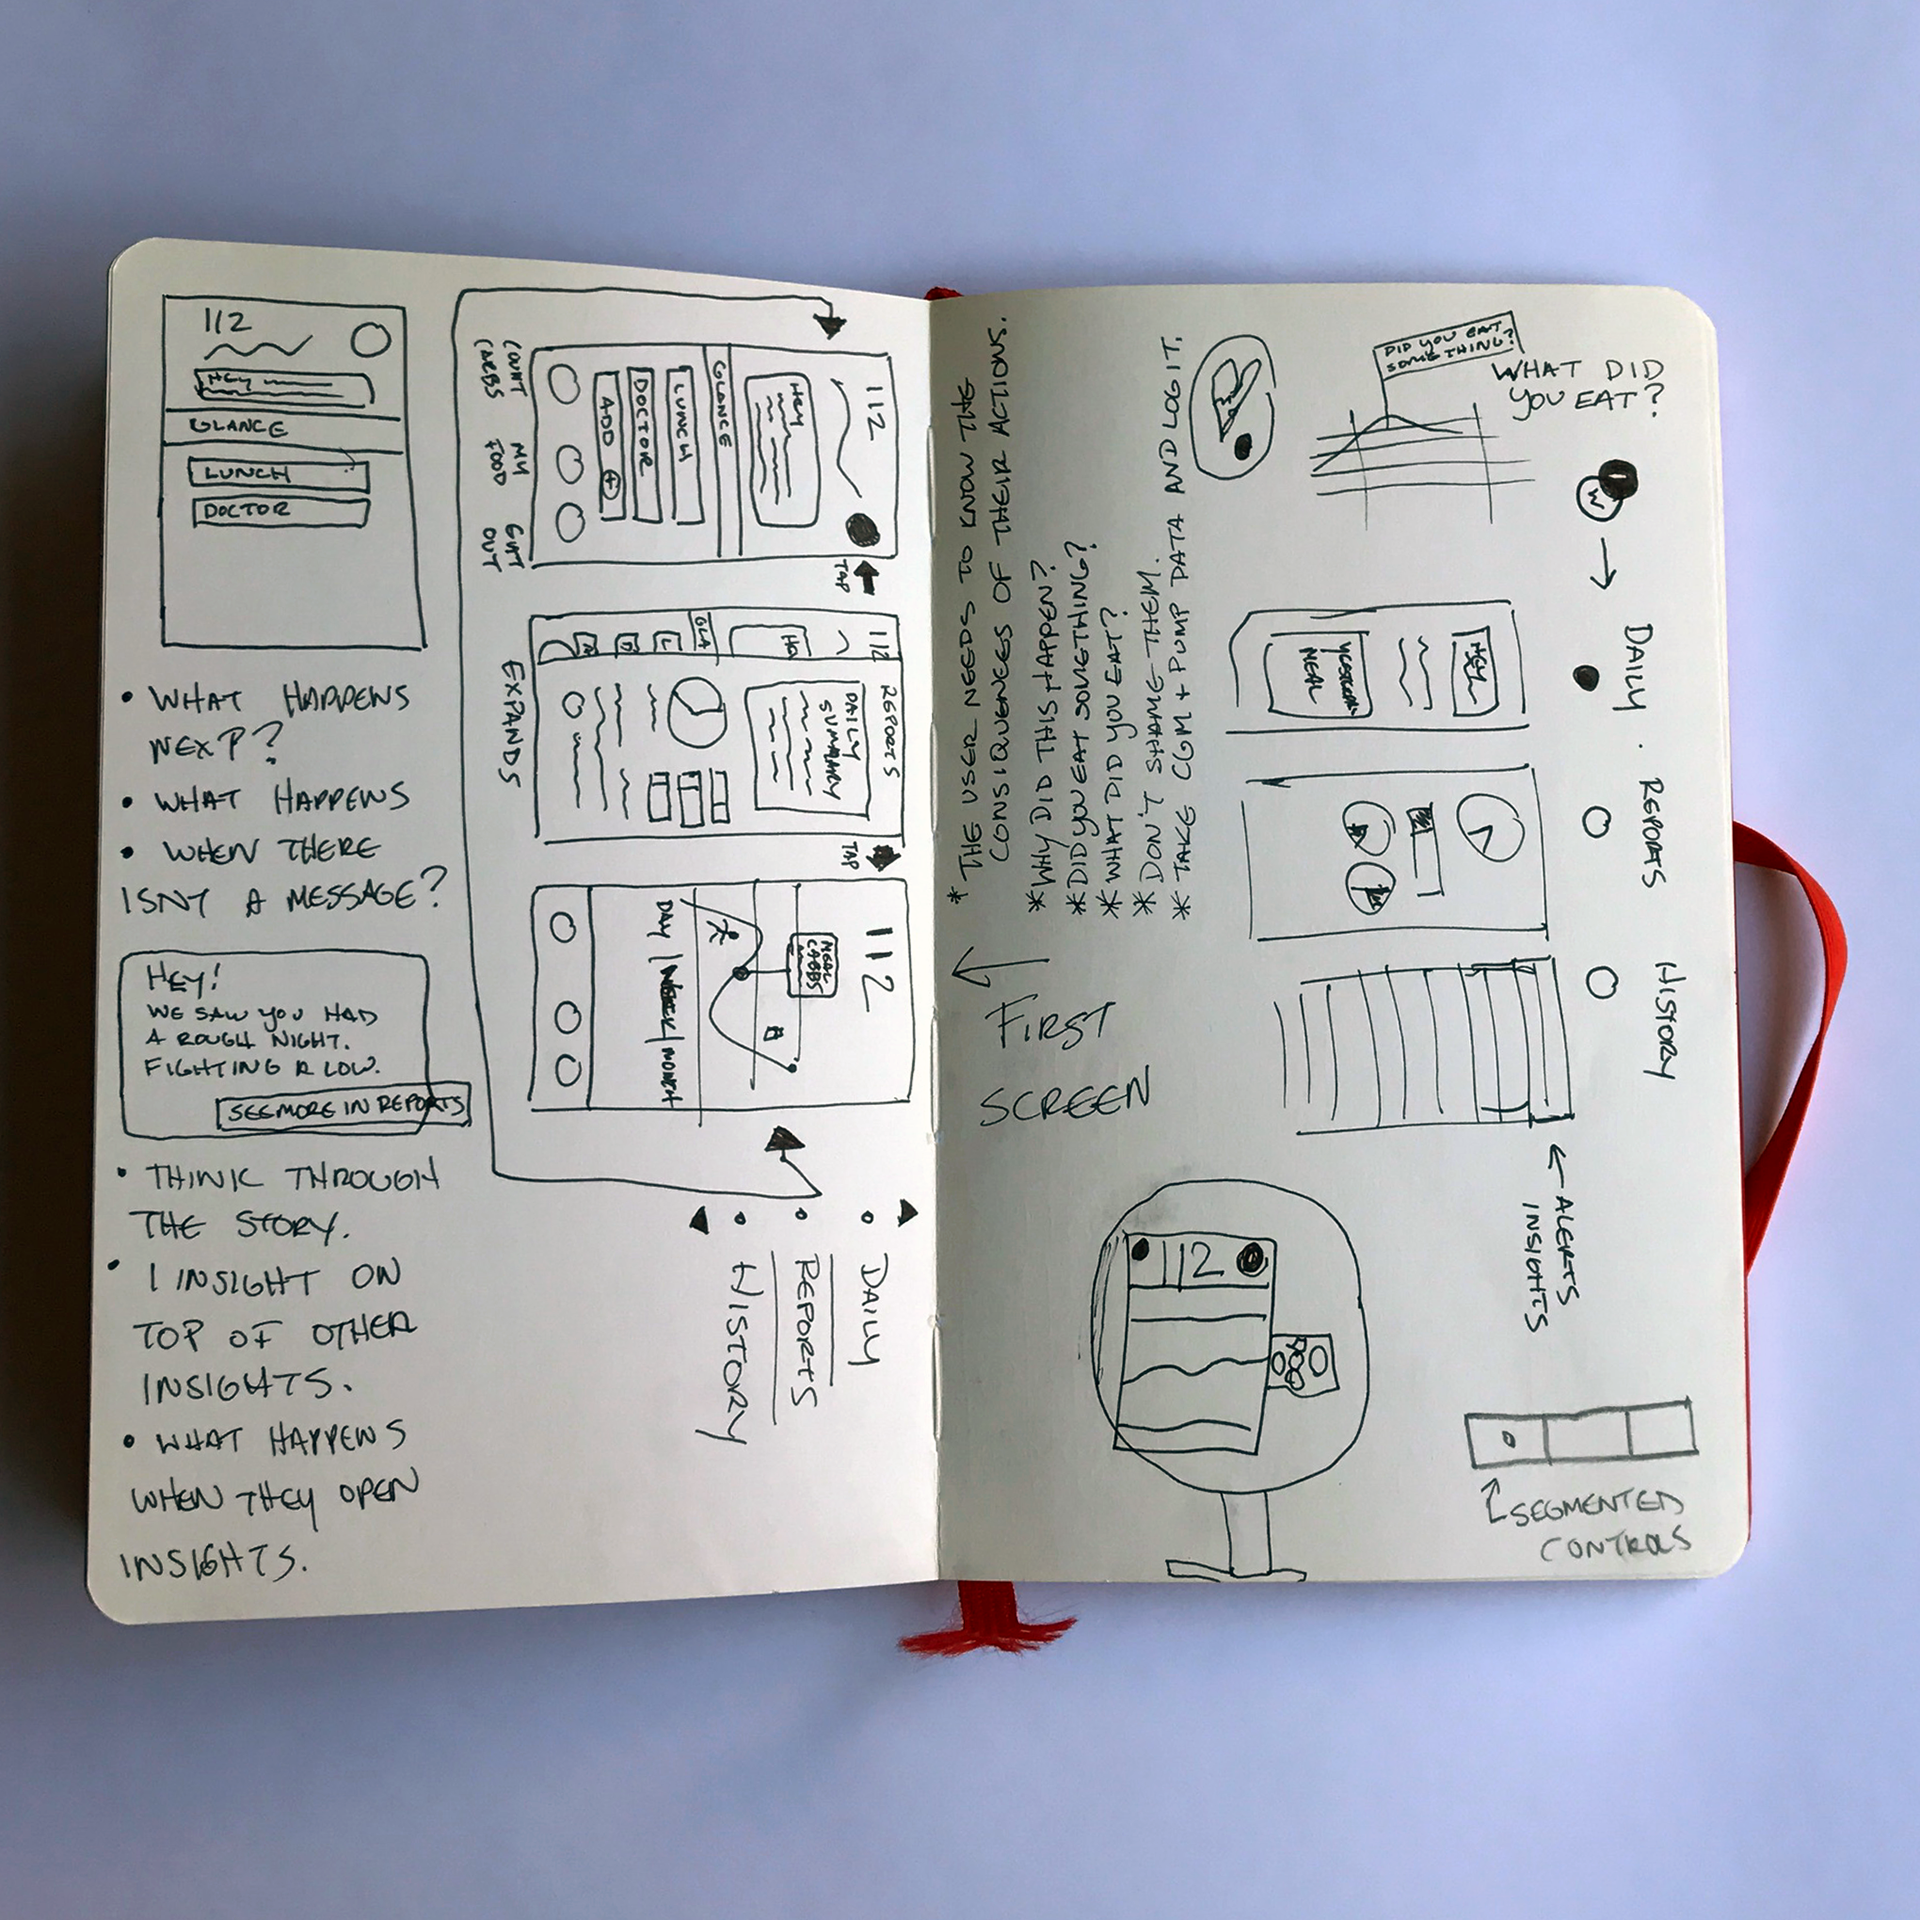 112
HEY
GLANCE
LUNCH
DOCTOR
• WHAT HAPPENS
NEXT?
• WHAT HAPPENS
• WHEN THERE
ISNT A MESSAGE?
HEY!
WE SAW YOU HAD
A ROUGH NIGHT.
FIGHTING A LOW.
SEE MORE IN REPORTS
• THINK THROUGH
THE STORY.
• 1 INSIGHT ON
TOP OF OTHER
INSIGHTS.
• WHAT HAPPENS
WHEN THEY OPEN
INSIGHTS.
112
HEY
GLANCE
LUNCH
DOCTOR
ADD +
COUNT
CARBS
MY
FOOD
OUT
TAP
112
GLA
L
D
REPORTS
DAILY
SUMMARY
EXPANDS
TAP
112
MEAL
CARBS
DAY | WEEK | MONTH
DAILY
REPORTS
HISTORY
* THE USER NEEDS TO KNOW THE
CONSIQUENCES OF THEIR ACTIONS.
* WHY DID THIS HAPPEN?
* DID YOU EAT SOMETHING?
* WHAT DID YOU EAT?
* DON'T SHAME THEM.
* TAKE CGM + PUMP DATA AND LOG IT.
← FIRST
SCREEN
DID YOU EAT
SOMETHING?
WHAT DID
YOU EAT?
W
DAILY · REPORTS
HISTORY
HEY
MEAL
← ALERTS
INSIGHTS
112
SEGMENTED
CONTROLS